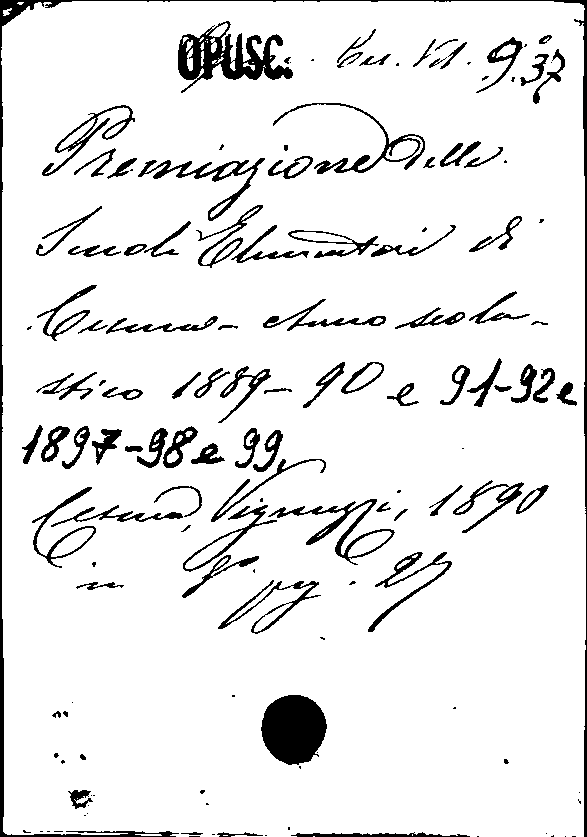 OPUSC. Ces. Vol. 9.° 37
Premiazione delle
Scuole Elementari di
Cesena - Anno scola-
stico 1889-90 e 91-92 e
1897-98 e 99.
Cesena, Vignuzzi, 1890
in 8° pag. 27